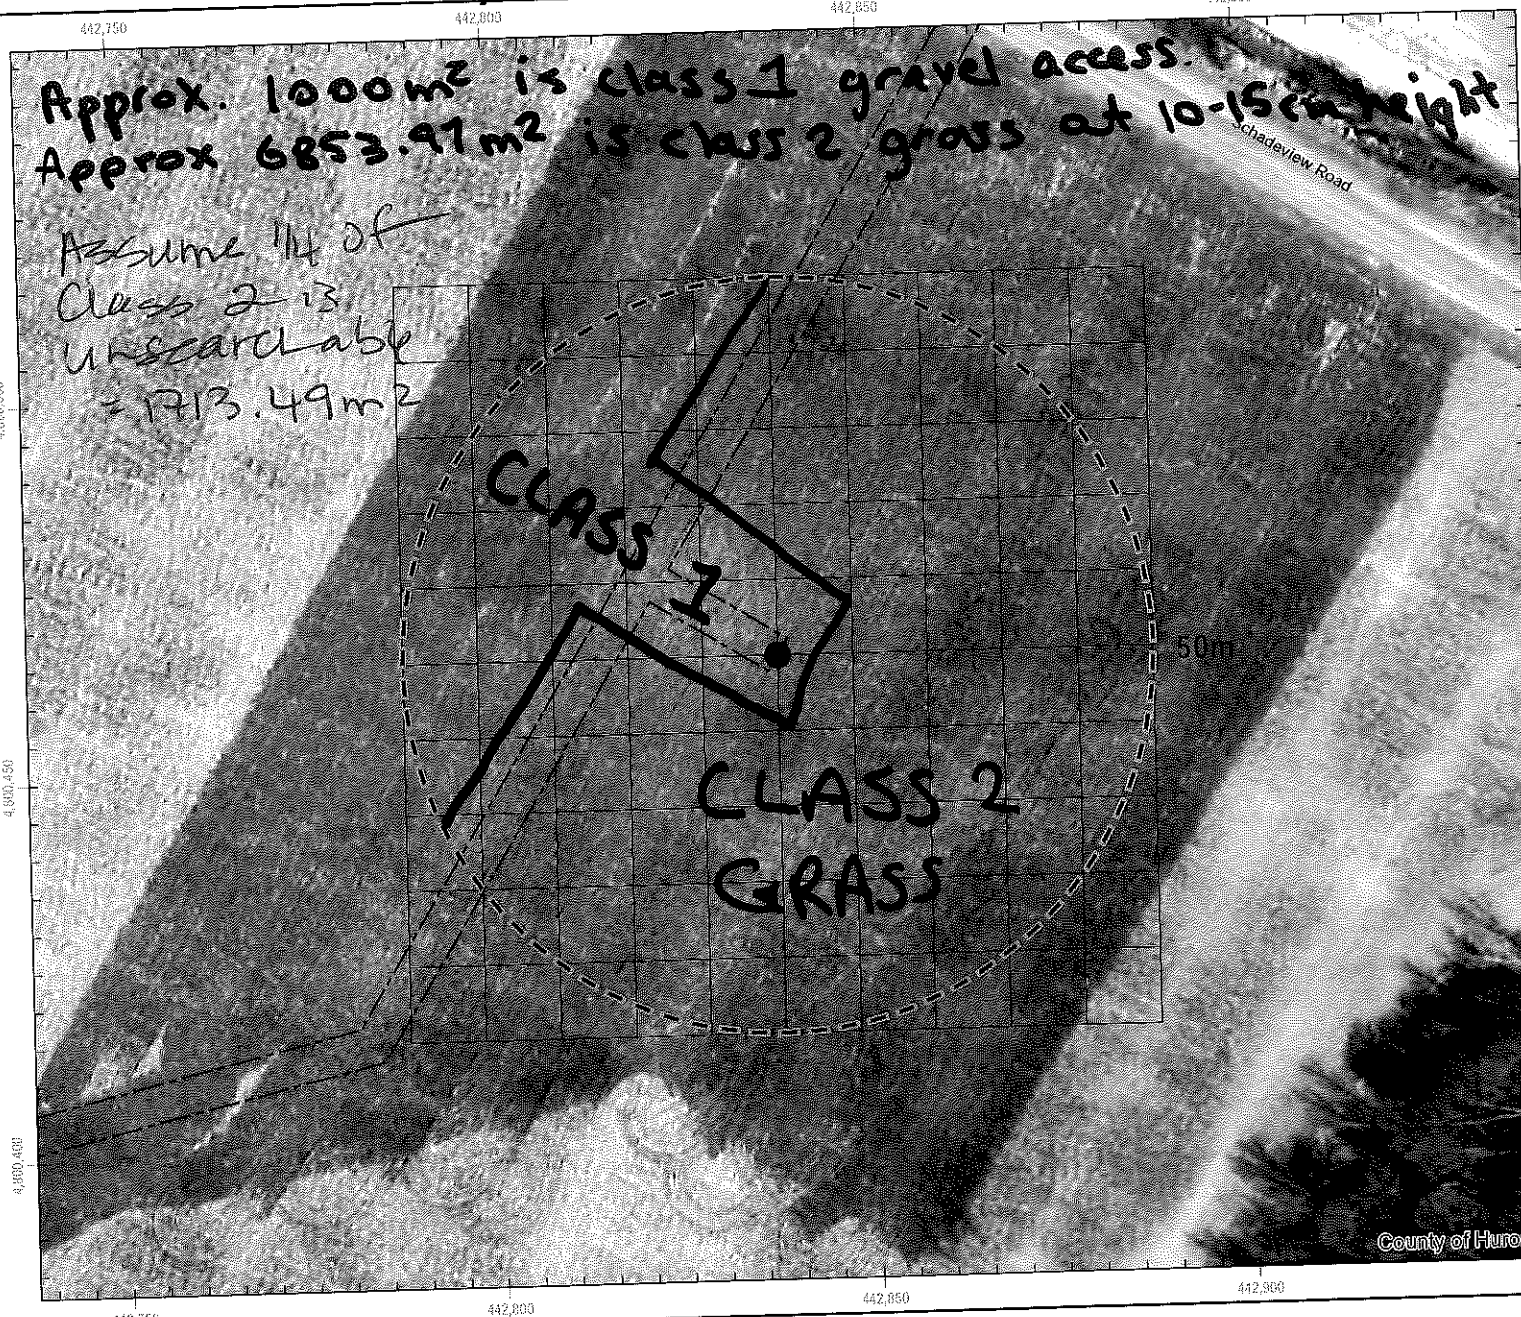 442,750
442,800
442,850
Approx. 1000m² is class 1 gravel access.
Approx 6853.97m² is class 2 grass at 10-15cm height
Schadeview Road
Assume 1/4 of
Class 2 is
unsearchable
= 1713.49m²
CLASS
1
50m
4,840,450
CLASS 2
GRASS
4,840,400
County of Huro
442,800
442,850
442,900